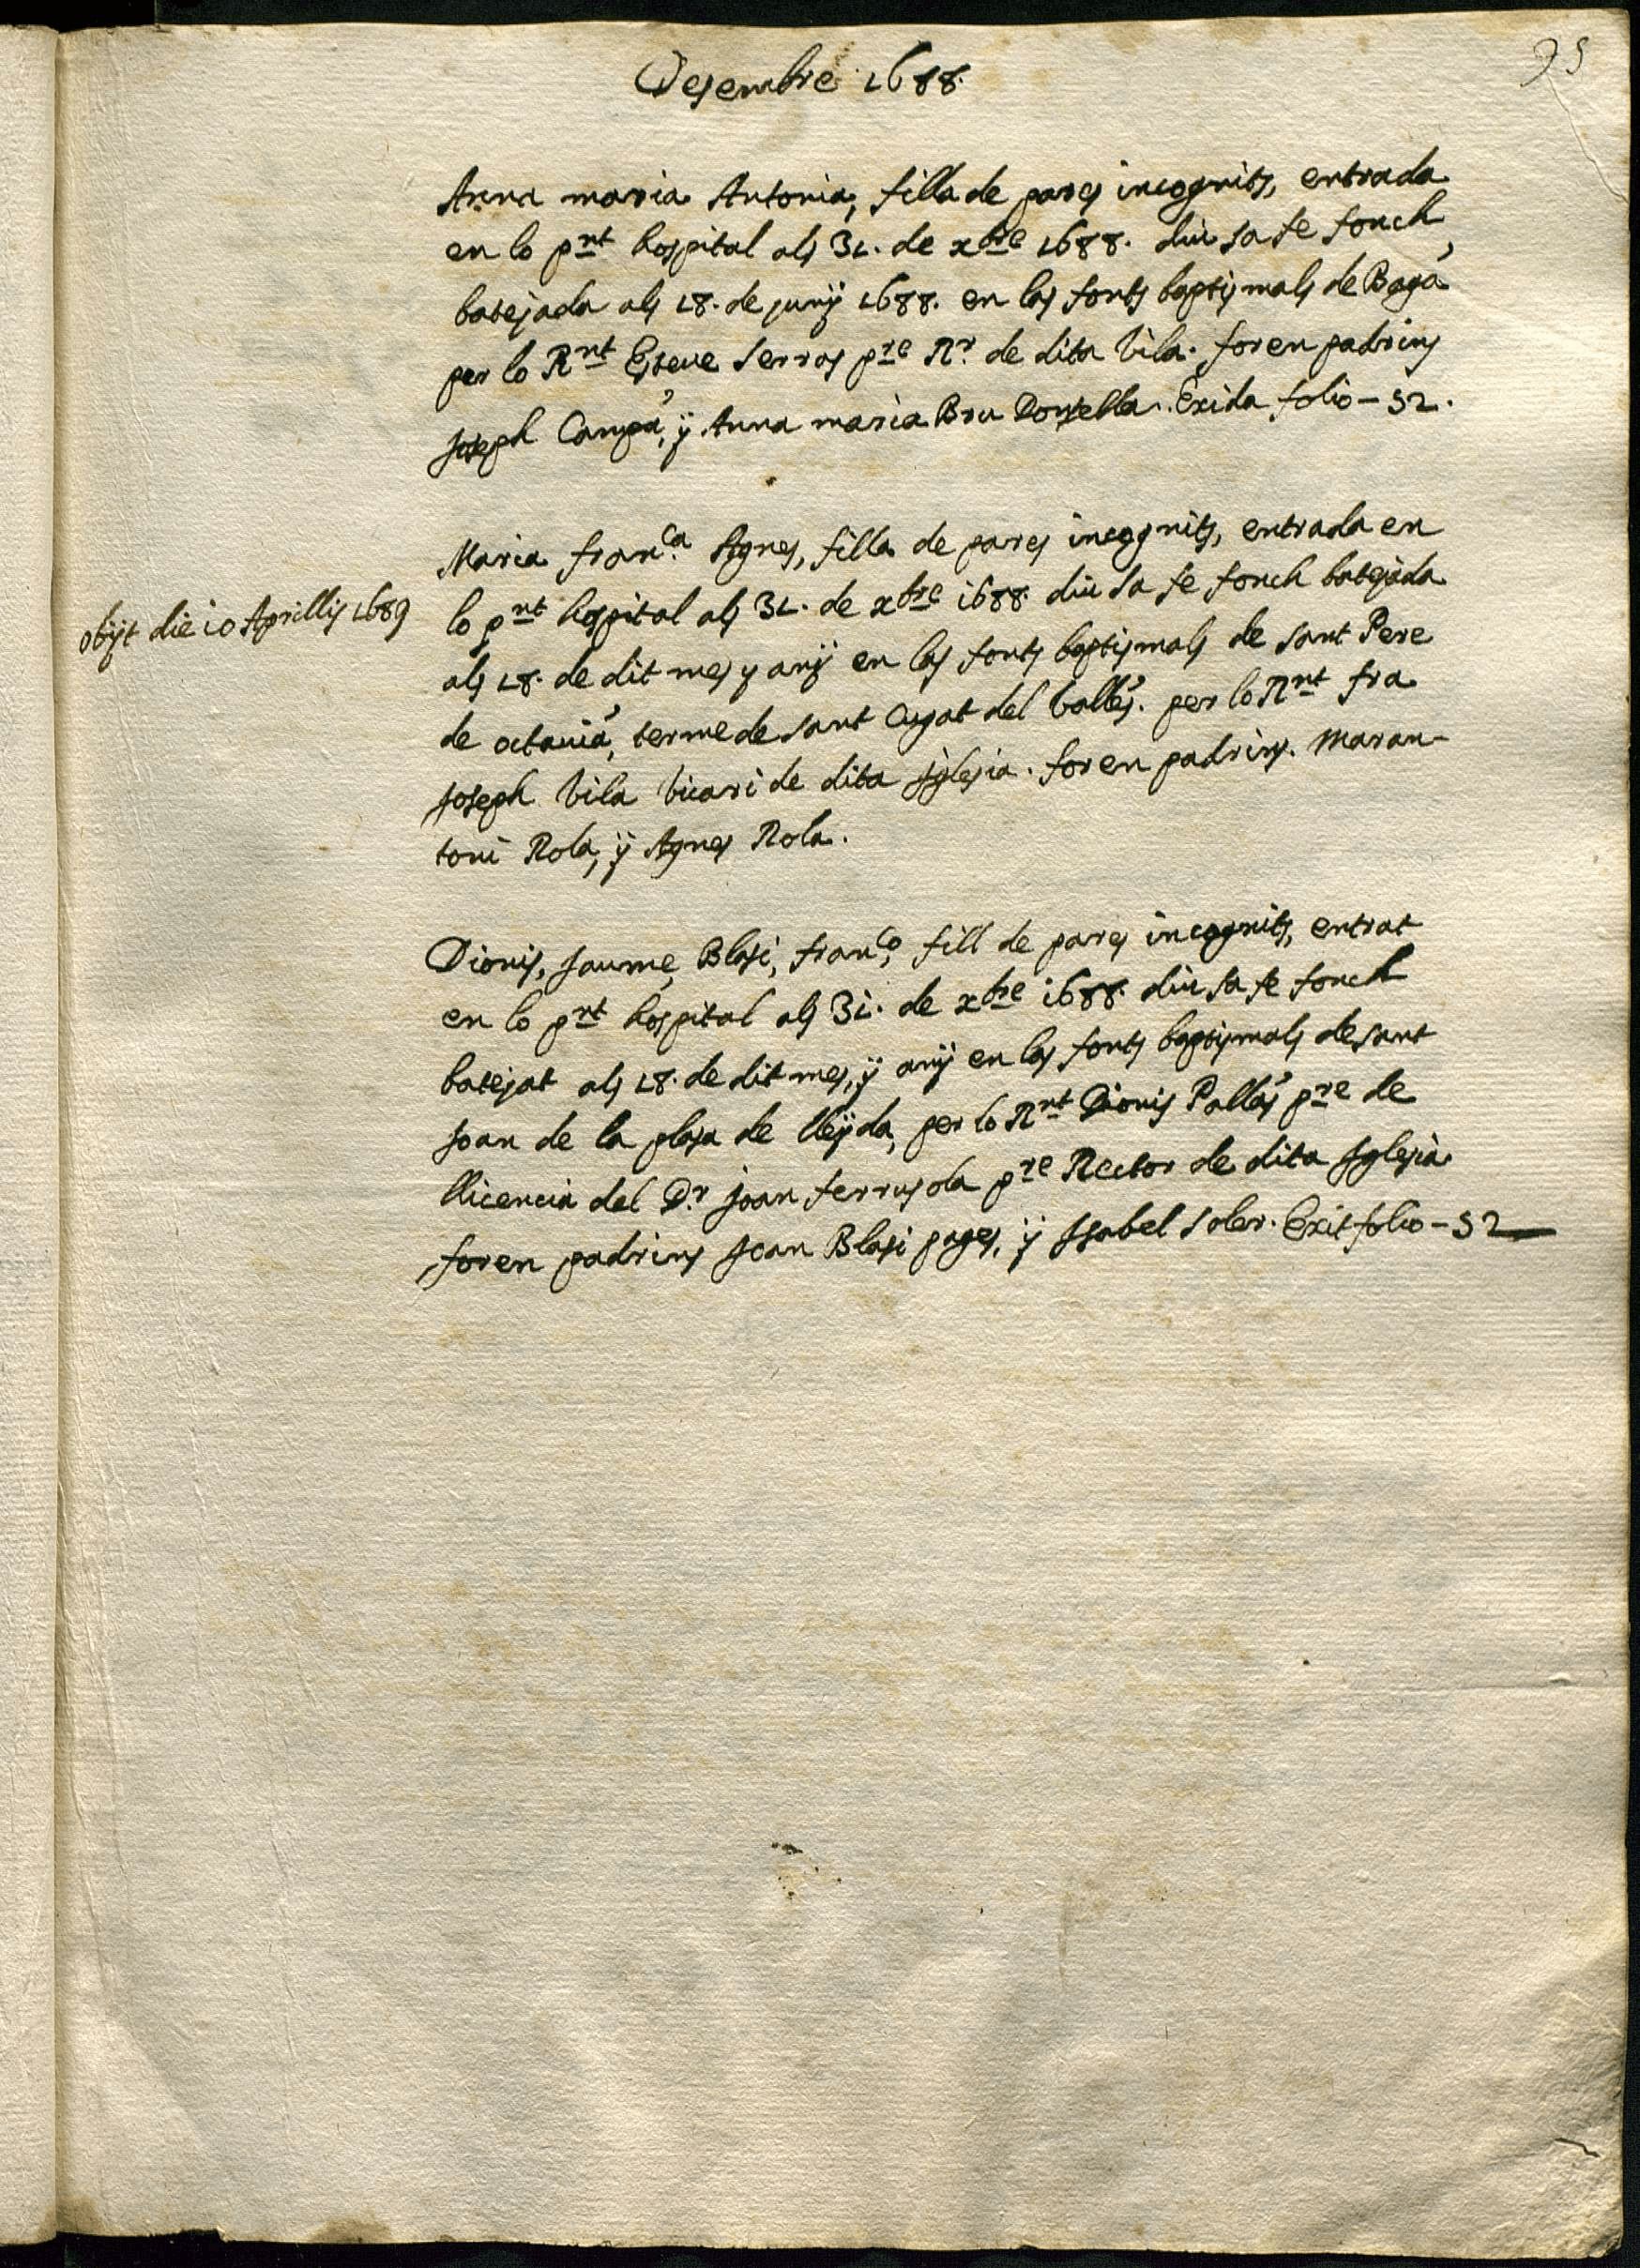 Desembre 1688.
95
Anna maria Antonia, filla de pares incognits, entrada
en lo pnt hospital als 31. de xbre 1688. diu sa fe fonch
batejada als 18. de junÿ 1688. en las fonts baptismals de Bagà
per lo Rnt Esteve Serras pre Rr. de dita vila. foren padrins
Joseph Campà, ÿ Anna maria Bru Donsella. Exida folio - 52.
Maria Franca. Agnes, filla de pares incognits, entrada en
lo pnt hospital als 31. de xbre 1688. diu sa fe fonch batejada
obijt die 10 Aprillis 1689
als 18. de dit mes y anÿ en las fonts baptismals de sant Pere
de octavià, terme de sant Cugat del Vallès. per lo Rnt fra
Joseph Vila vicari de dita Iglesia. foren padrins. Maran-
toni Rola, ÿ Agnes Rola.
Dionis, Jaume, Blasi, Franco. fill de pares incognits, entrat
en lo pnt hospital als 31. de xbre 1688. diu sa fe fonch
batejat als 18. de dit mes, ÿ anÿ en las fonts baptismals de sant
Joan de la plasa de lleÿda, per lo Rnt Dionis Pallàs pre de
llicencia del Dr. Joan ferrusola pre Rector de dita Iglesia
foren padrins Joan Blasi pages, ÿ Isabel Soler. Exit folio - 52